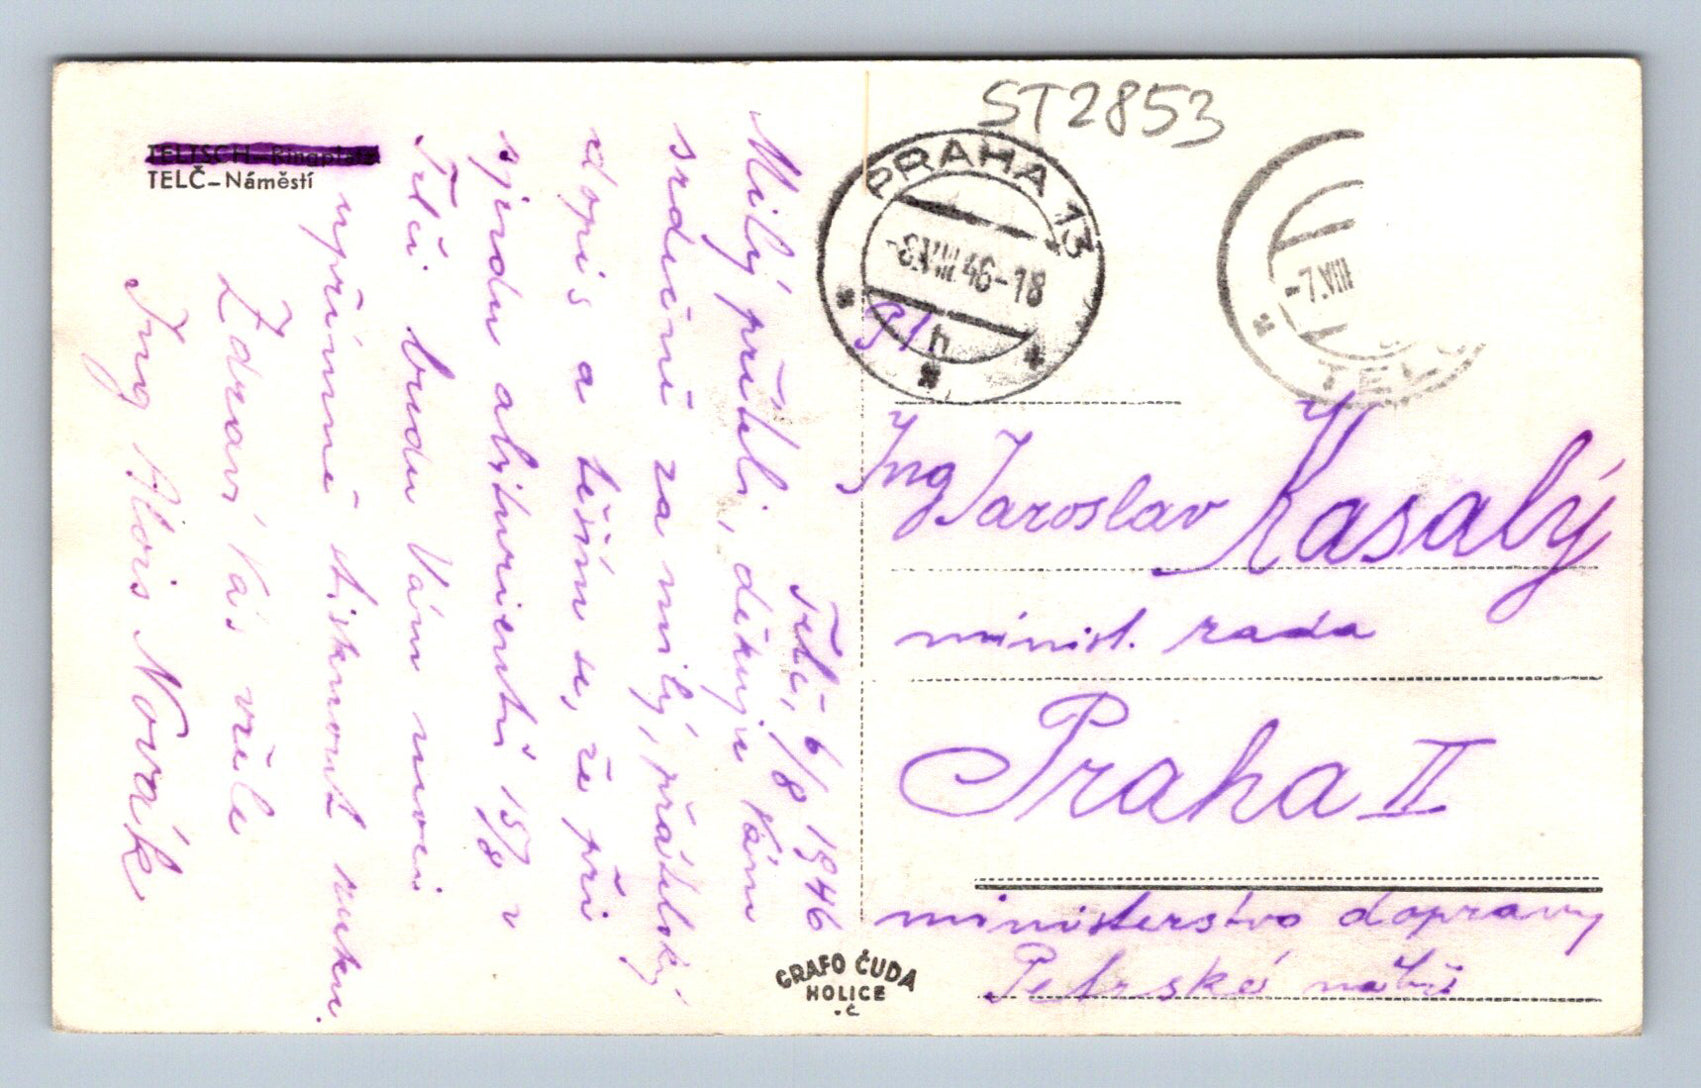 TELTSCH-Ringplatz
TELČ-Náměstí
Telč, 6/8 1946
Milý příteli, děkuji Vám
srdečně za milý, přátelský
dopis a těším se, že při
sjezdu abiturientů 15/8 v
Telči budu Vám moci
upřímně stisknout ruku.
Zdraví Vás vřele
Ing Alois Novák
ST2853
PRAHA 13
-3.VIII.46-18
h
-7.VIII
TELČ
Ing Jaroslav Kasalý
minist. rada
Praha II
ministerstvo dopravy
Petrské nábř.
GRAFO ČUDA
HOLICE
.č